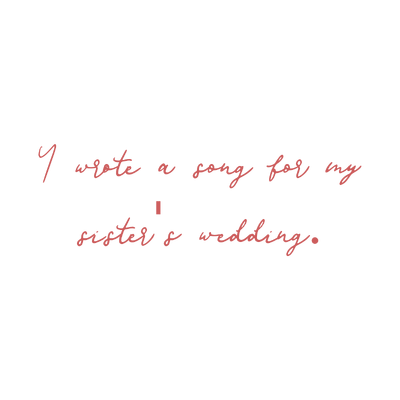 I wrote a song for my
sister's wedding.